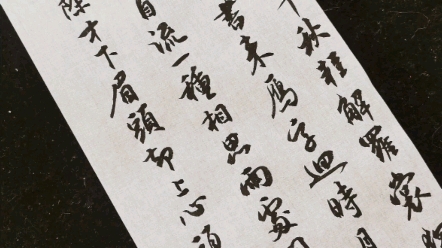 秋輕解羅裳
書来鴈字迴時月
自流一種相思兩處
除才下眉頭却上心頭